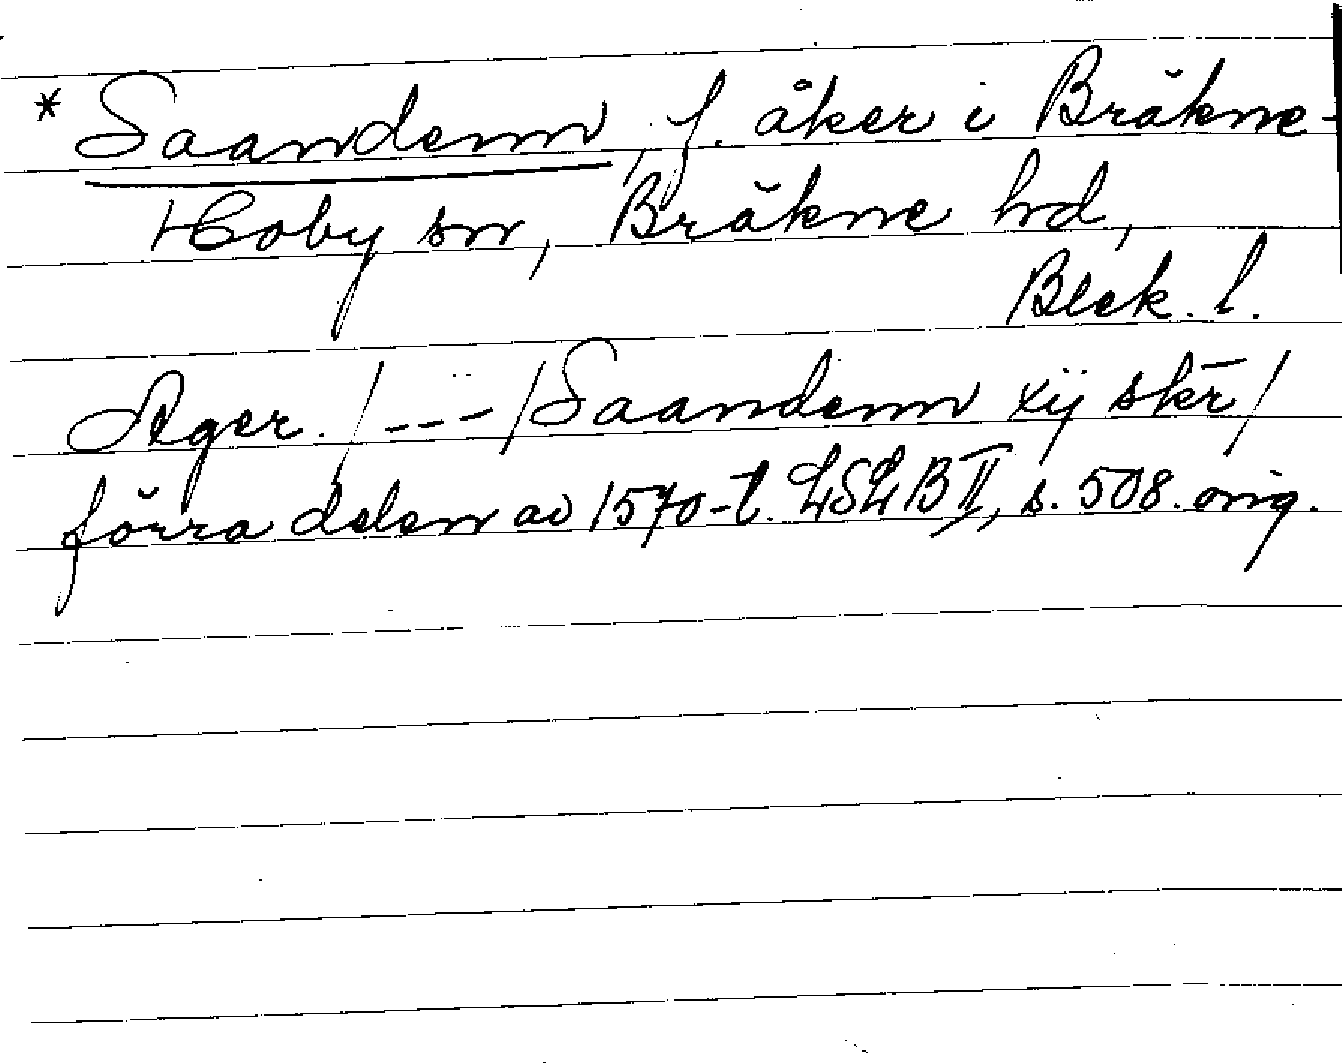 * Saandenn, f. åker i Bräkne-
Hoby sn, Bräkne hd,
Blek. l.
Ager. /---/ Saandenn xij sker /
förra delen av 1570-t. LSLB II, s. 508. orig.